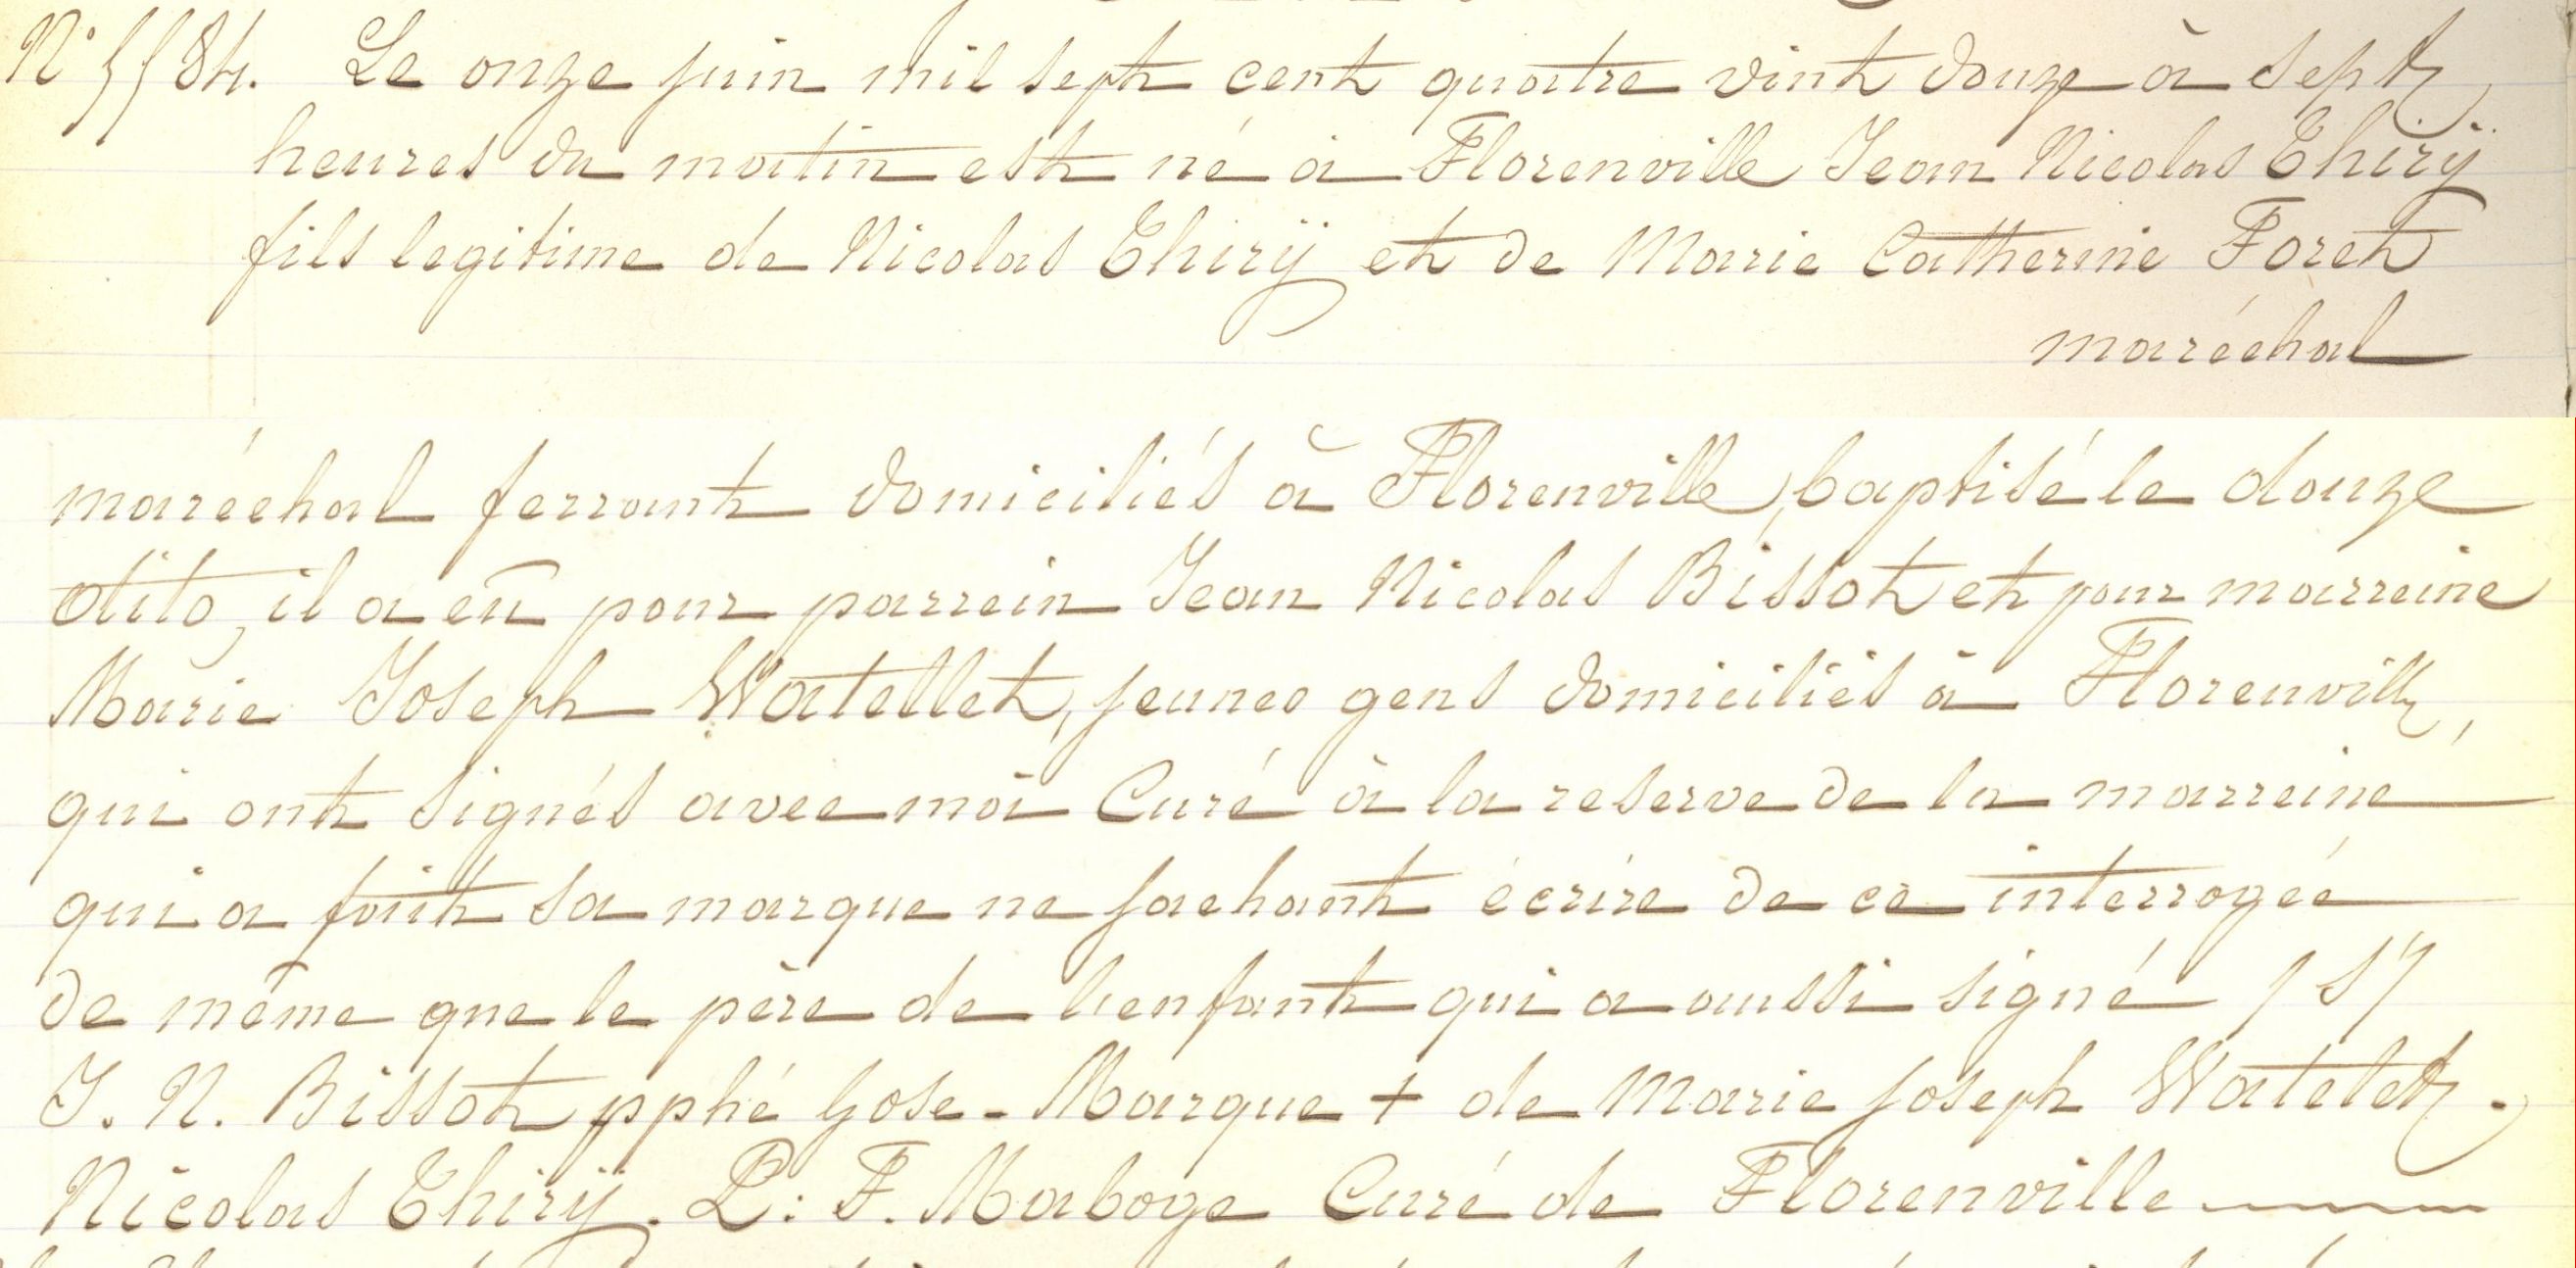 N° 5584. Le onze juin mil sept cent quatre vint douze à sept
heures du matin est né à Florenville Jean Nicolas Thirÿ
fils legitime de Nicolas Thirÿ et de Marie Catherine Foret
maréchal
maréchal ferrant domiciliés à Florenville, baptisé le douze
dito, il a eû pour parrein Jean Nicolas Bissot et pour marreine
Marie Joseph Watellet, jeunes gens domiciliés à Florenville,
qui ont signés avec moi Curé à la reserve de la marreine
qui a fait sa marque ne sachant écrire de ce interrogée
de même que le père de l'enfant qui a aussi signé /S/
J. N. Bissot pphé Gose - Marque + de Marie Joseph Watelet.
Nicolas Thirÿ. P: F. Maboge Curé de Florenville